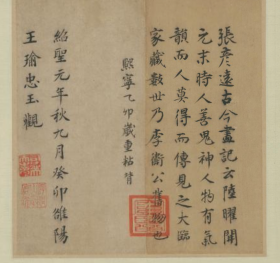 張彥遠古今畫記云陸曜開
元末時人善鬼神人物有氣
韻而人莫得而傳見之大臨
家藏數世乃李衛公舊物也
熙寧乙卯歲重粘背
紹聖元年秋九月癸卯雒陽
王瑜忠玉觀